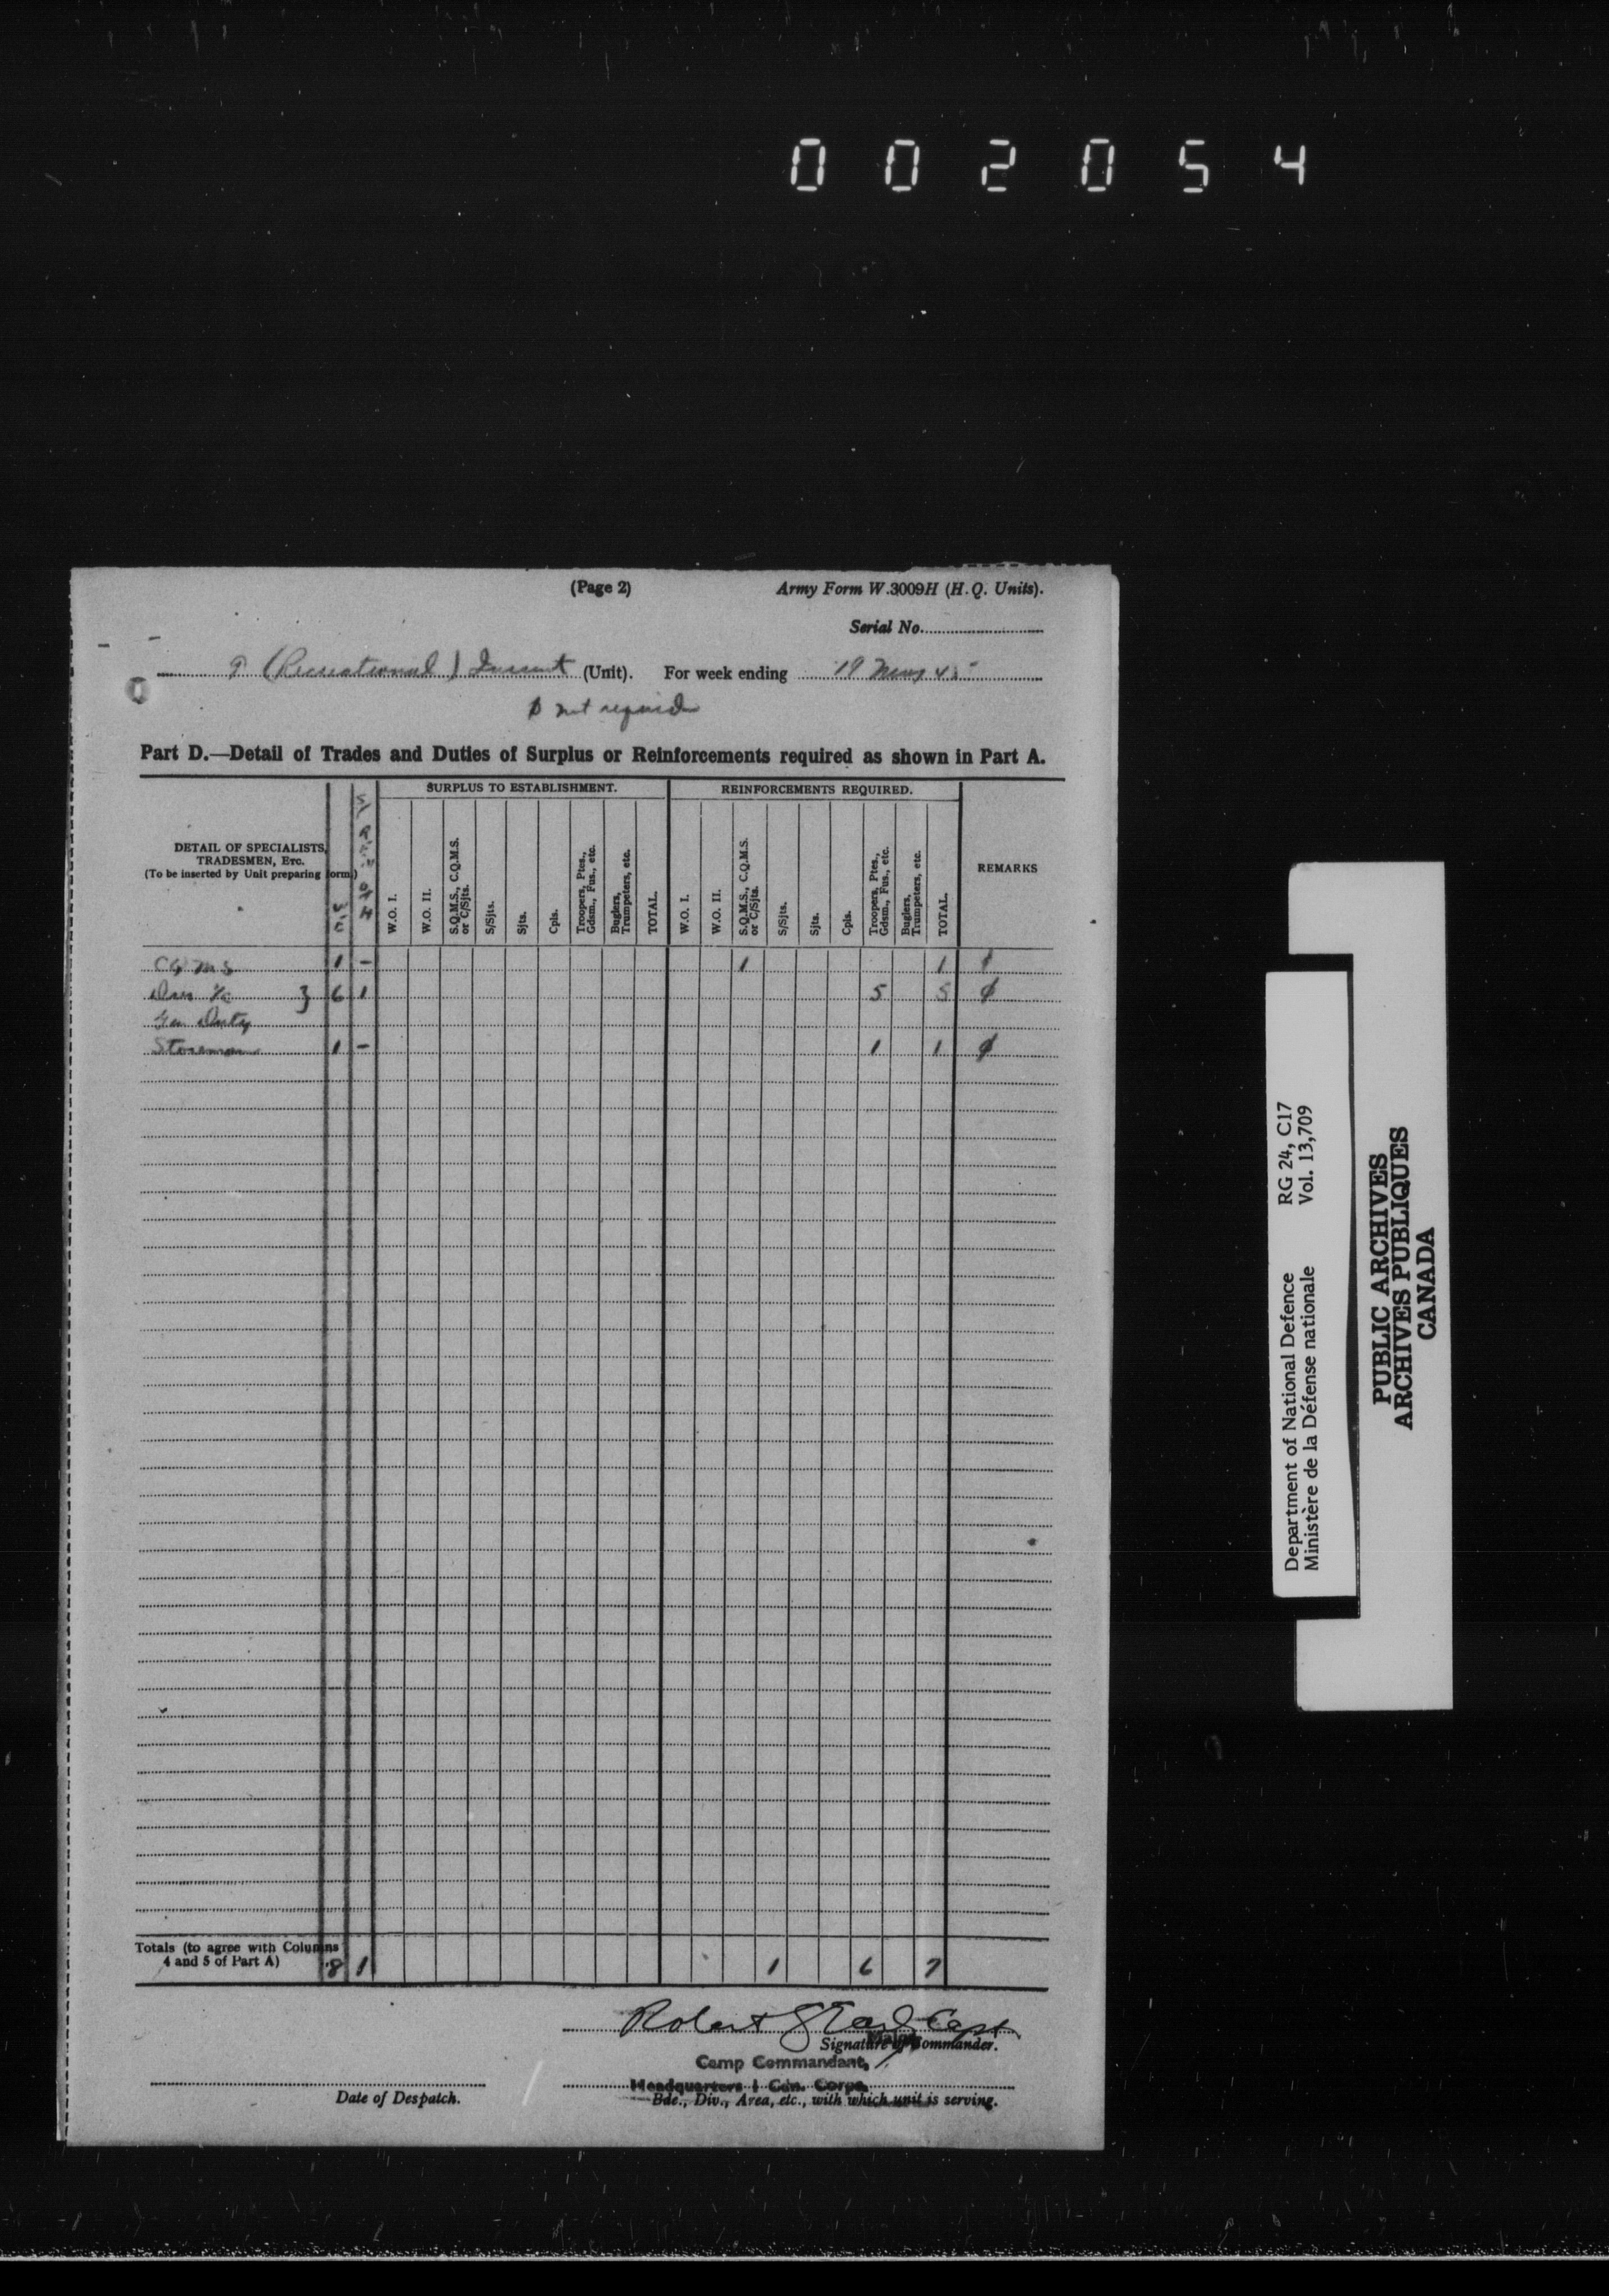 002054
(Page 2) Army Form W.3009H (H.Q. Units).
Serial No.
(Recreational) (Unit). For week ending 19 May 45
ϕ not required
Part D.—Detail of Trades and Duties of Surplus or Reinforcements required as shown in Part A.
SURPLUS TO ESTABLISHMENT. REINFORCEMENTS REQUIRED.
DETAIL OF SPECIALISTS,
TRADESMEN, Etc.
(To be inserted by Unit preparing form.)
W.O. I. W.O. II. S.Q.M.S., C.Q.M.S. or C/Sjts. S/Sjts. Sjts. Cpls. Troopers, Ptes., Gdsm., Fus., etc. Buglers, Trumpeters, etc. TOTAL. W.O. I. W.O. II. S.Q.M.S., C.Q.M.S. or C/Sjts. S/Sjts. Sjts. Cpls. Troopers, Ptes., Gdsm., Fus., etc. Buglers, Trumpeters, etc. TOTAL. REMARKS
CQMS 1 - 1 1 ϕ
Dvr i/c } 6 1 5 5 ϕ
Gen Duty
Storeman 1 - 1 1 ϕ
Totals (to agree with Columns
4 and 5 of Part A) 8 1 1 6 7
Robert Capt
Signature of Commander.
Camp Commandant,
Headquarters 1 Cdn. Corps.
Date of Despatch. Bde., Div., Area, etc., with which unit is serving.
Department of National Defence RG 24, C17
Ministère de la Défense nationale Vol. 13,709
PUBLIC ARCHIVES
ARCHIVES PUBLIQUES
CANADA